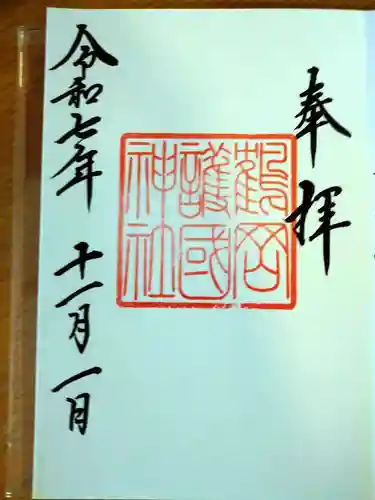 奉拝
鶴岡
護國
神社
令和七年 十一月一日